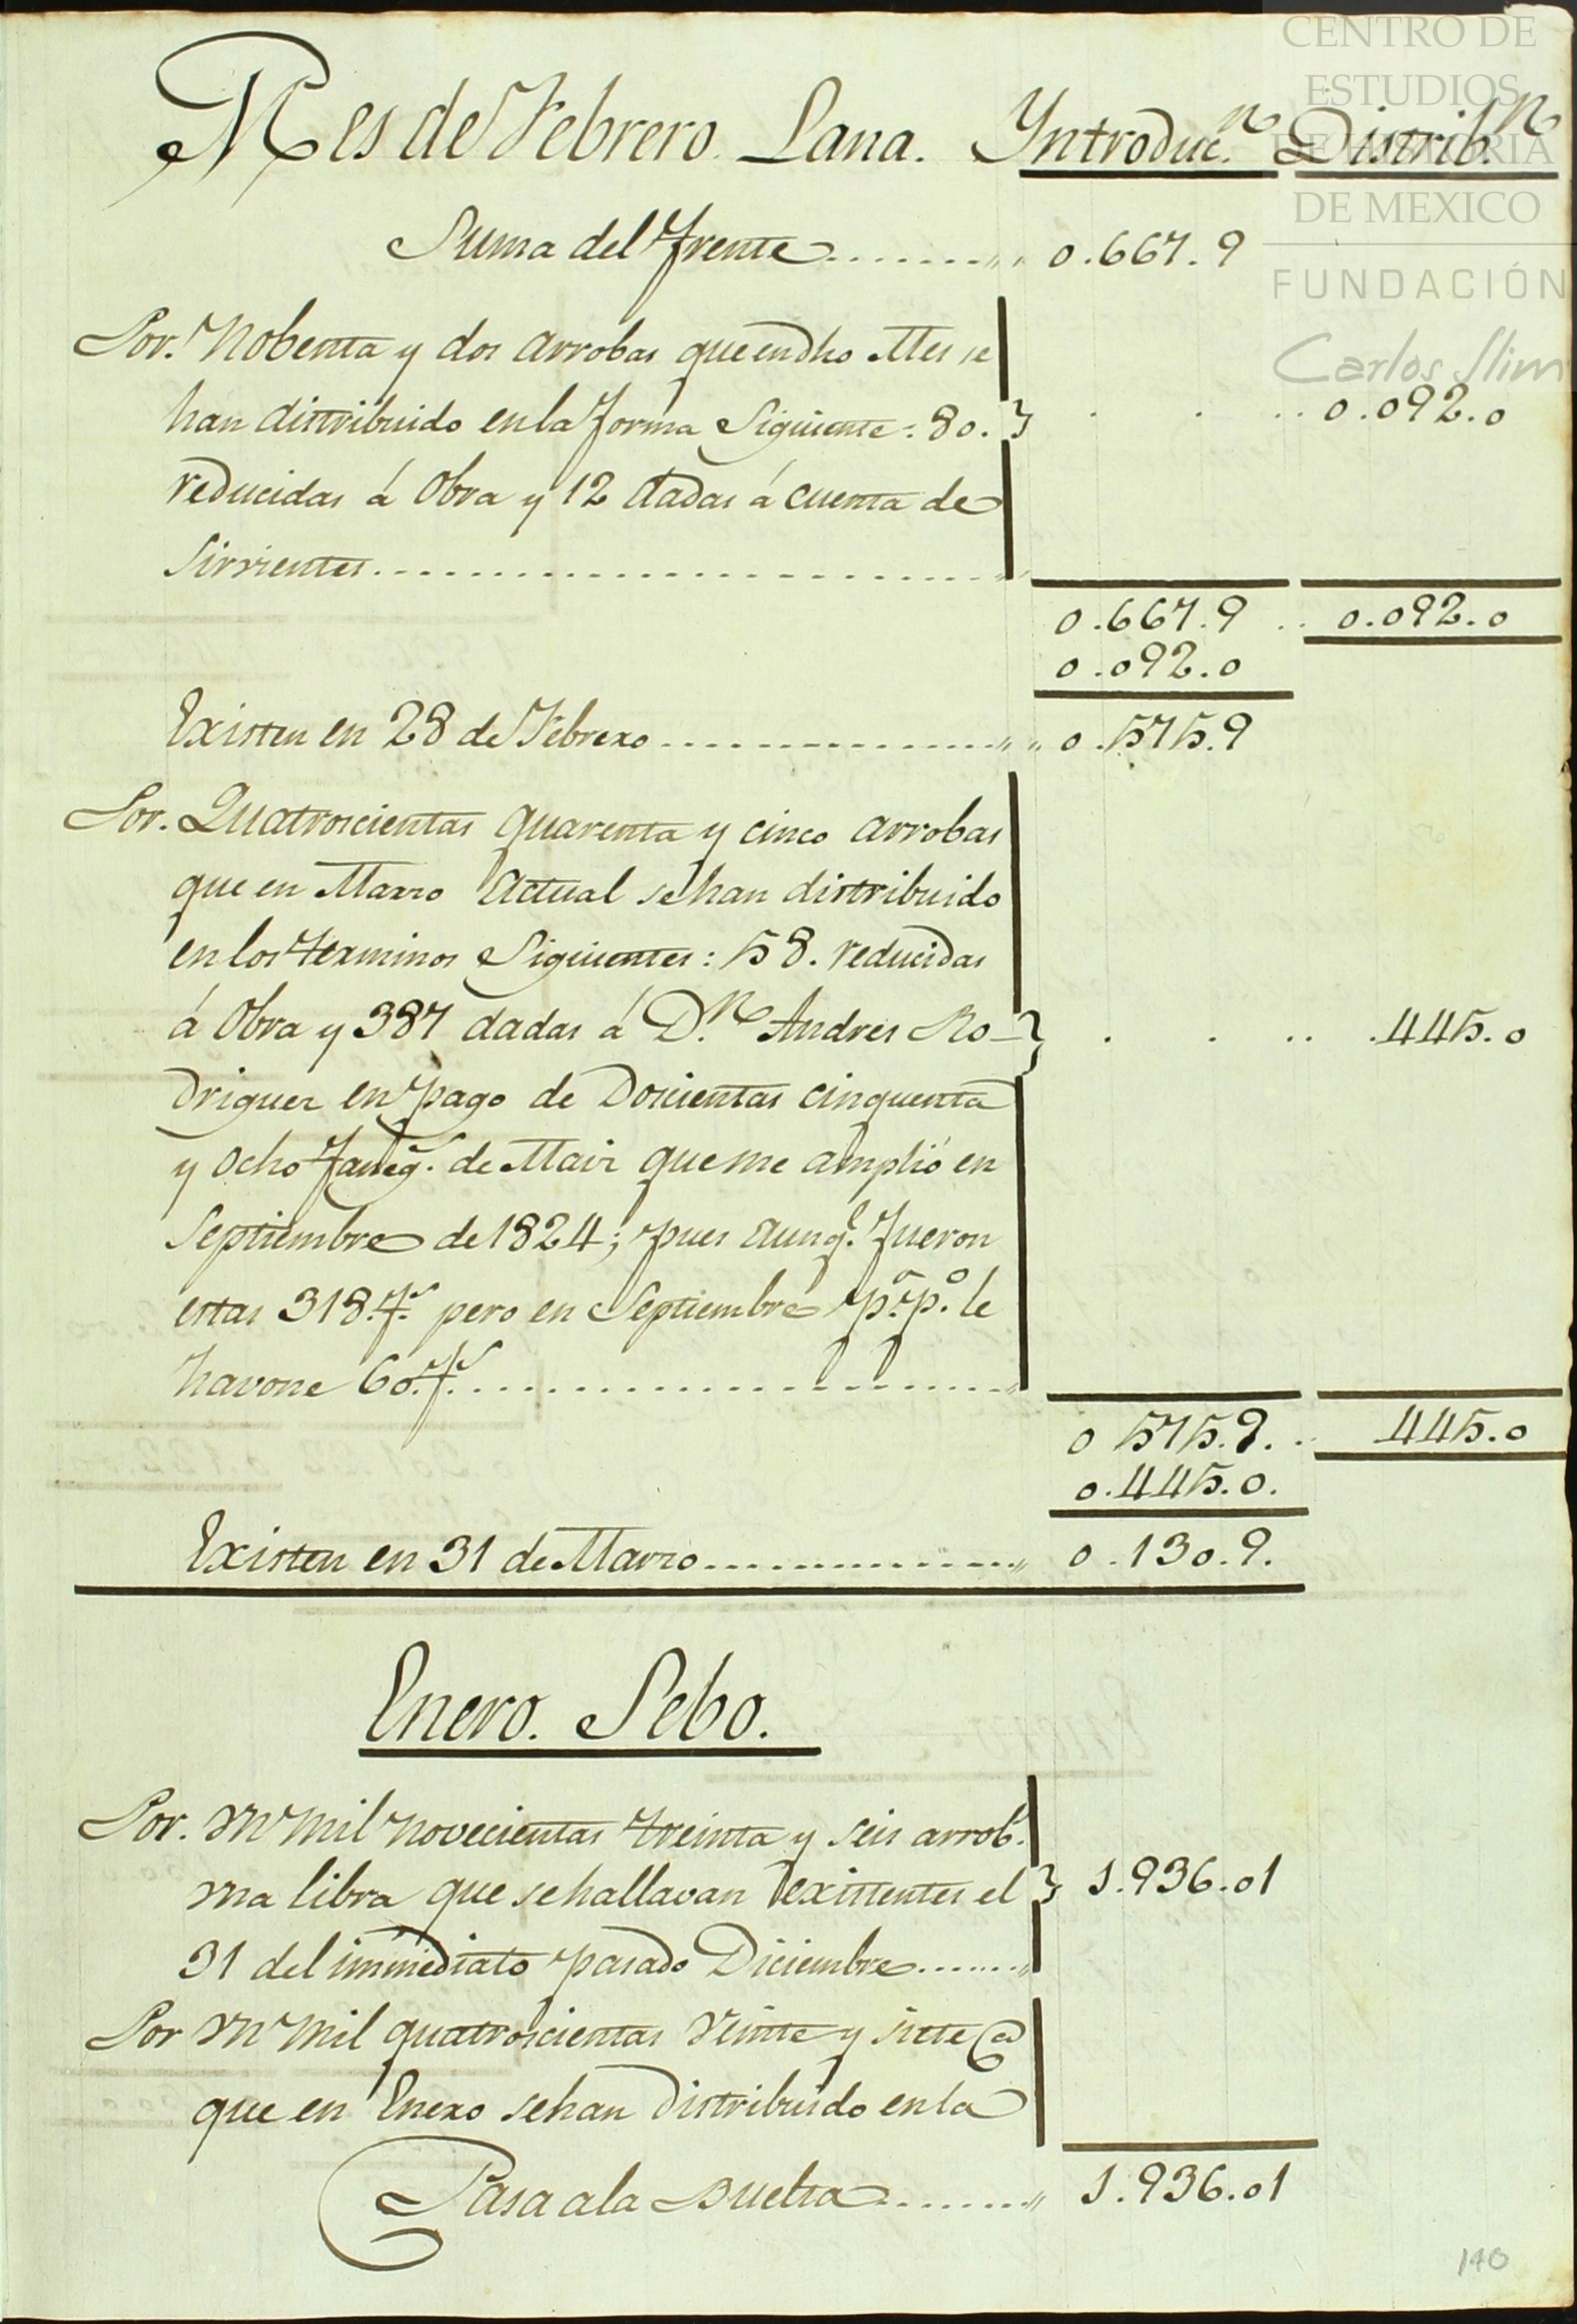 CENTRO DE
ESTUDIOS
DE HISTORIA
DE MEXICO
FUNDACIÓN
Carlos Slim
Mes de Febrero. Lana. Yntroduc.n Distrib.n
Suma del frente 0.667.9
Por. Nobenta y dos arrobas que en dho Mes se
han distribuido en la forma Siguiente: 80. 0.092.0
reducidas á Obra y 12 dadas á cuenta de
Sirvientes
0.667.9 0.092.0
0.092.0
Existen en 28 de Febrero 0.575.9
Por. Quatrocientas quarenta y cinco arrobas
que en Marzo Actual se han distribuido
en los terminos Siguientes: 58. reducidas
á Obra y 387 dadas á D.n Andres Ro- .445.0
driguez en pago de Doscientas cinquenta
y ocho faneg.s de Maiz que me amplió en
Septiembre de 1824; pues aunq.e fueron
estas 318.f.s pero en Septiembre p.o p.o le
havone 60.f.s
0 575.9. 445.0
0.445.0.
Existen en 31 de Marzo 0.130.9.
Enero. Sebo.
Por. un mil novecientas treinta y seis arrob.s
una libra que se hallavan existentes el 1.936.01
31 del immediato pasado Diciembre
Por un mil quatrocientas veinte y siete @
que en Enero se han distribuido en la
Pasa a la Buelta 1.936.01
140